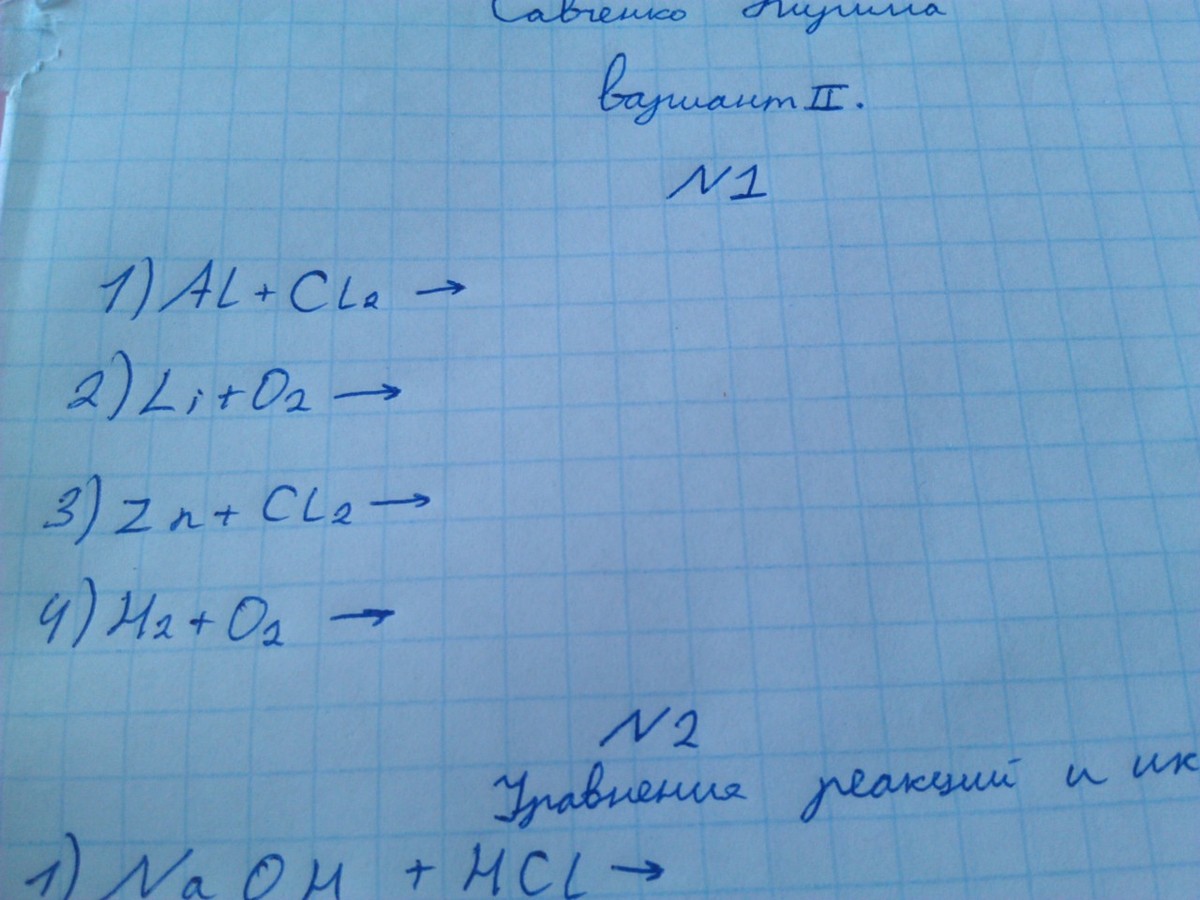 Савченко
вариант II.
N1
1) Al + Cl₂ →
2) Li + O₂ →
3) Zn + Cl₂ →
4) H₂ + O₂ →
N2
Уравнения реакций и их
1) NaOH + HCl →